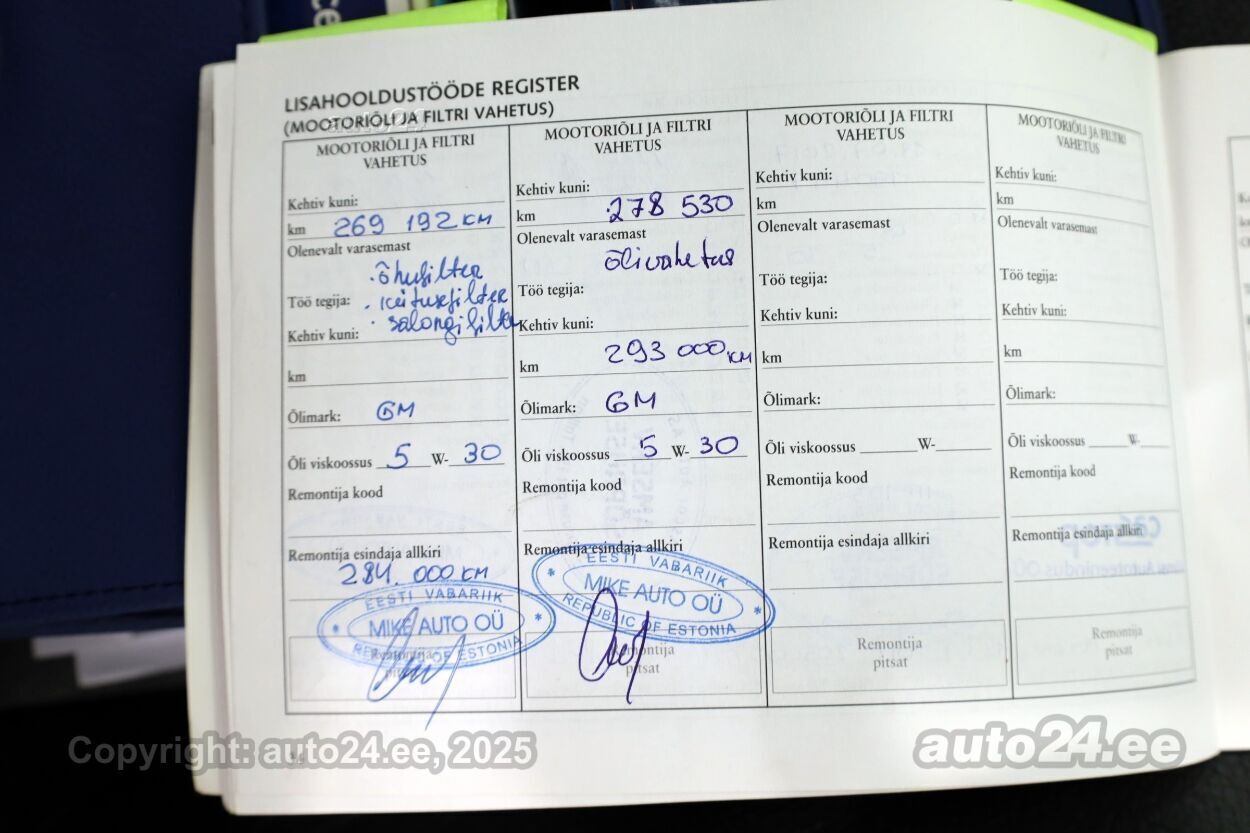 LISAHOOLDUSTÖÖDE REGISTER
(MOOTORIÕLI JA FILTRI VAHETUS)
MOOTORIÕLI JA FILTRI
VAHETUS
Kehtiv kuni:
km 269 192 KM
Olenevalt varasemast
· õhufilter
Töö tegija: · keitusefilter
Kehtiv kuni: · salongifilter
km
Õlimark: GM
Õli viskoossus 5 W- 30
Remontija kood
Remontija esindaja allkiri
284. 000 KM
EESTI VABARIIK
* MIKE AUTO OÜ *
REPUBLIC OF ESTONIA
Remontija
pitsat
MOOTORIÕLI JA FILTRI
VAHETUS
Kehtiv kuni:
km 278 530
Olenevalt varasemast
õlivahetus
Töö tegija:
Kehtiv kuni:
293 000 KM
km
Õlimark: GM
Õli viskoossus 5 W- 30
Remontija kood
Remontija esindaja allkiri
EESTI VABARIIK
* MIKE AUTO OÜ *
REPUBLIC OF ESTONIA
Remontija
pitsat
MOOTORIÕLI JA FILTRI
VAHETUS
Kehtiv kuni:
km
Olenevalt varasemast
Töö tegija:
Kehtiv kuni:
km
Õlimark:
Õli viskoossus ______W-______
Remontija kood
Remontija esindaja allkiri
Remontija
pitsat
MOOTORIÕLI JA FILTRI
VAHETUS
Kehtiv kuni:
km
Olenevalt varasemast
Töö tegija:
Kehtiv kuni:
km
Õlimark:
Õli viskoossus ______W-____
Remontija kood
Remontija esindaja allkiri
Remontija
pitsat
Copyright: auto24.ee, 2025
auto24.ee